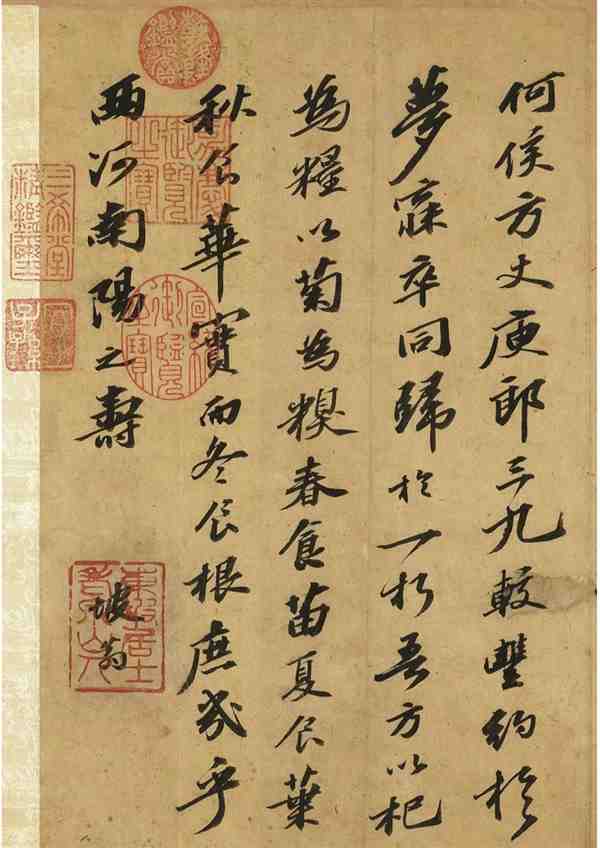 何侯方丈庾郎三九較豐約於
夢寐卒同歸於一朽吾方以杞
為糧以菊為糗春食苗夏食葉
秋食華實而冬食根庶幾乎
西河南陽之壽
坡翁
乾隆鑑賞
御覽之寶
御覽之寶
三希堂精鑑璽
宜子孫
東坡居士